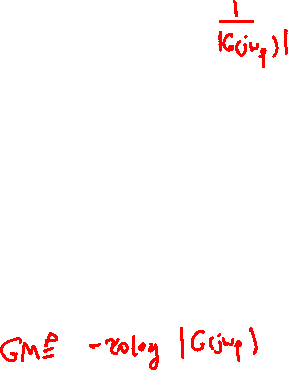 1
|G(jωp)|
GM ≜ -20log |G(jωp)